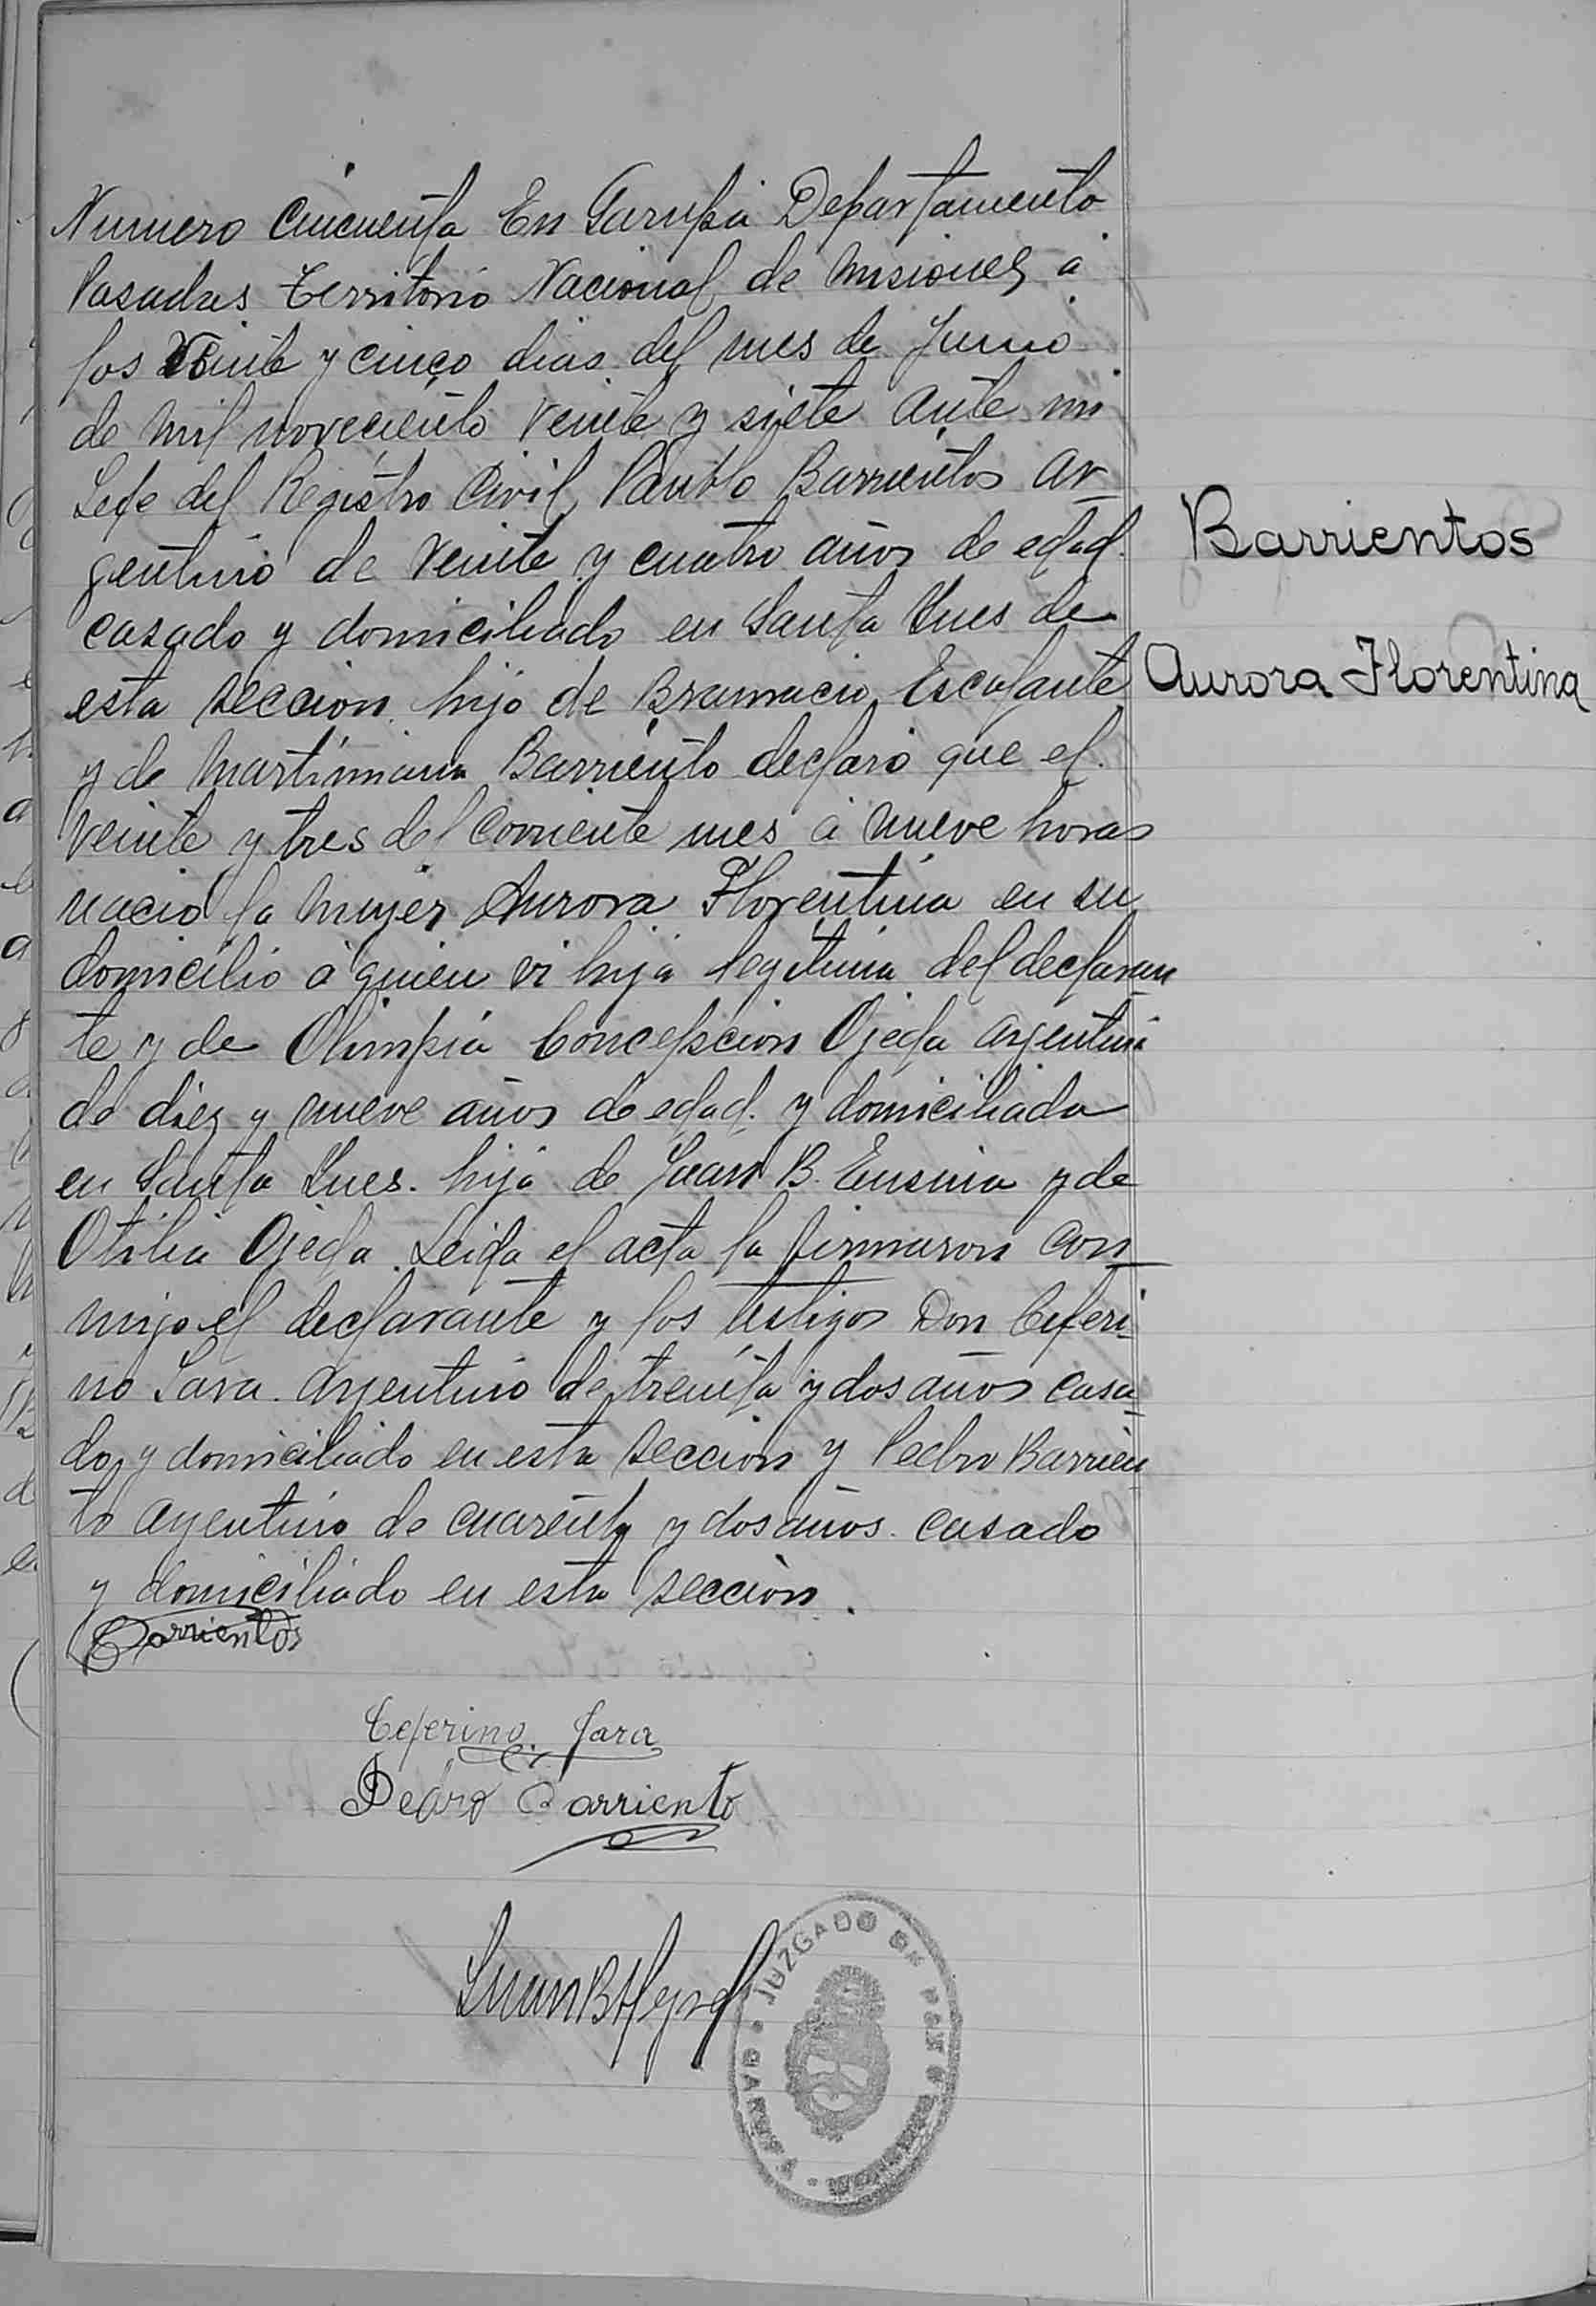 Numero Cincuenta En Garupá Departamento
Posadas Territorio Nacional de Misiones á
los Veinte y cinco dias del mes de Junio
de Mil novecientο veinte y siete Ante mi
Jefe del Registro Civil, Pablo Barrientos Ar-
gentino de Veinte y cuatro años de edad.
casado y domiciliado en Santa Ynes de
esta Seccion hijo de Escalante
y de Martimiana Barriento declaró que el
Veinte y tres del corriente mes á nueve horas
nació la Mujer Aurora Florentina en su
domicilio á quien vi hija legitima del declaran
te y de Olimpia Concepscion Ojeda argentina
de diez y nueve años de edad. y domiciliada
en Santa Ynes. hija de Juan B. Ensina y de
Otilia Ojeda. Leida el acta la firmaron con-
migo el declarante y los testigos Don Ceferi-
no Jara. Argentino de treinta y dos años casa-
do, y domiciliado en esta Seccion y Pedro Barrien
to Argentino de cuarenta y dos años. casado
y domiciliado en esta Sección.
Barrientos
Ceferino Jara
Pedro Barriento
Juan B
JUZGADO DE PAZ
GARUPA
Barrientos
Aurora Florentina